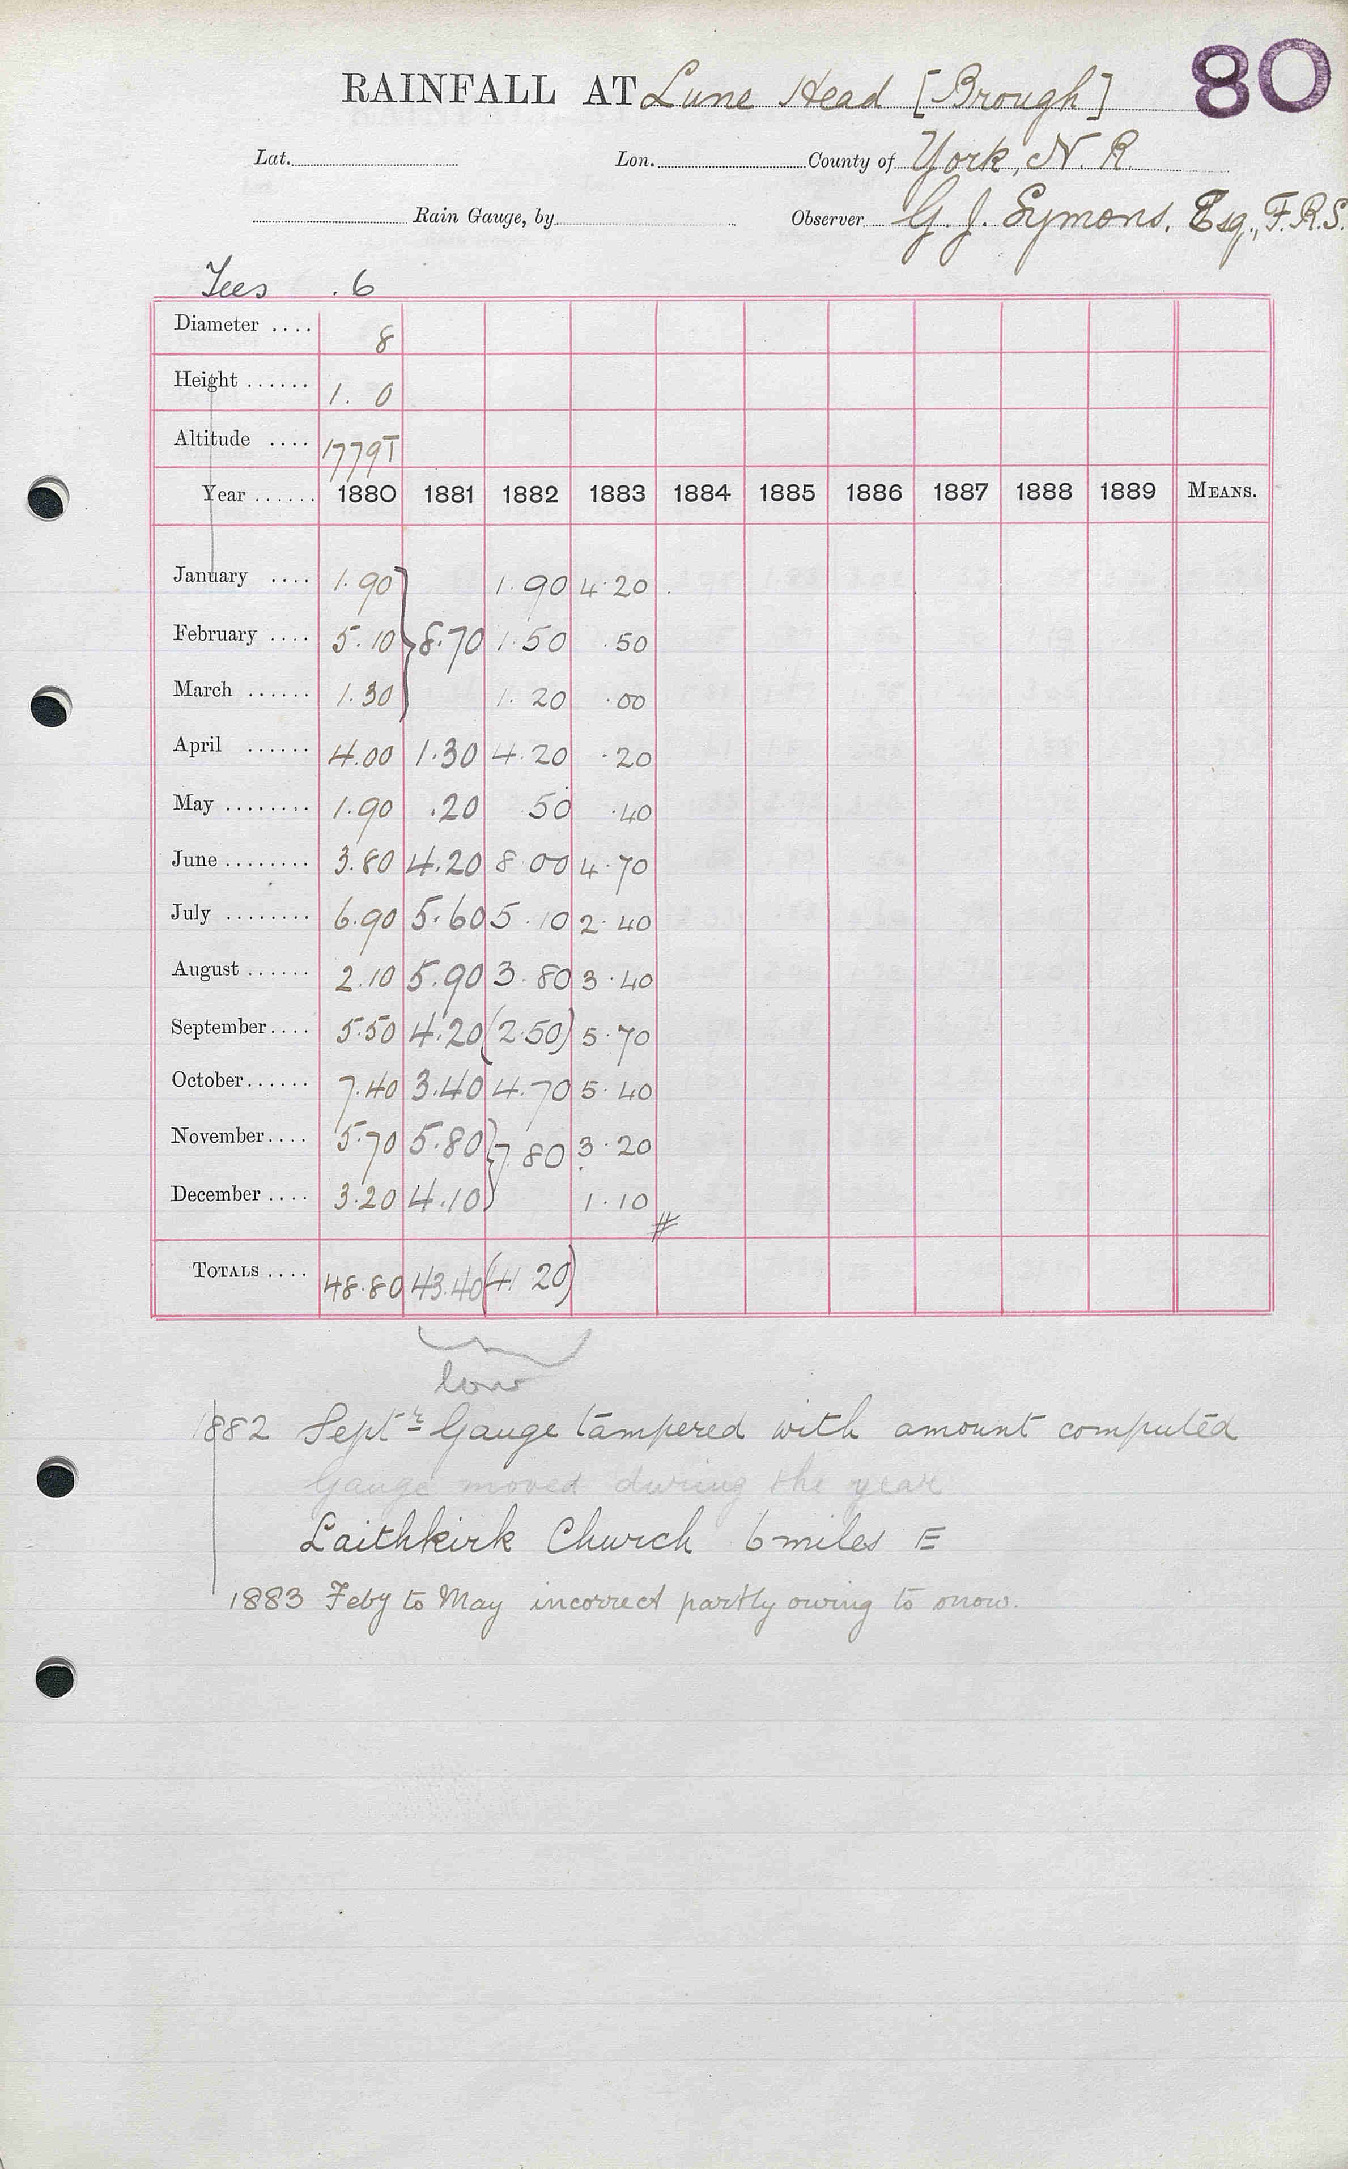 80
RAINFALL AT Lune Head [Brough]
Lat. Lon. County of York, N. R.
Rain Gauge, by Observer G. J. Symons, Esq., F.R.S.
Tees .6
Diameter .... 8
Height ...... 1. 0
Altitude .... 1779T
Year ...... 1880 1881 1882 1883 1884 1885 1886 1887 1888 1889 MEANS.
January .... 1.90 1.90 4.20
February .... 5.10 8.70 1.50 .50
March ...... 1.30 1.20 .00
April ...... 4.00 1.30 4.20 .20
May ........ 1.90 .20 50 .40
June ........ 3.80 4.20 8.00 4.70
July ........ 6.90 5.60 5.10 2.40
August ...... 2.10 5.90 3.80 3.40
September .... 5.50 4.20 (2.50) 5.70
October ...... 7.40 3.40 4.70 5.40
November .... 5.70 5.80 7.80 3.20
December .... 3.20 4.10 1.10
#
TOTALS .... 48.80 43.40 (41 20)
low
1882 Septr Gauge tampered with amount computed
Gauge moved during the year
Laithkirk Church 6 miles E
1883 Feby to May incorrect partly owing to snow.